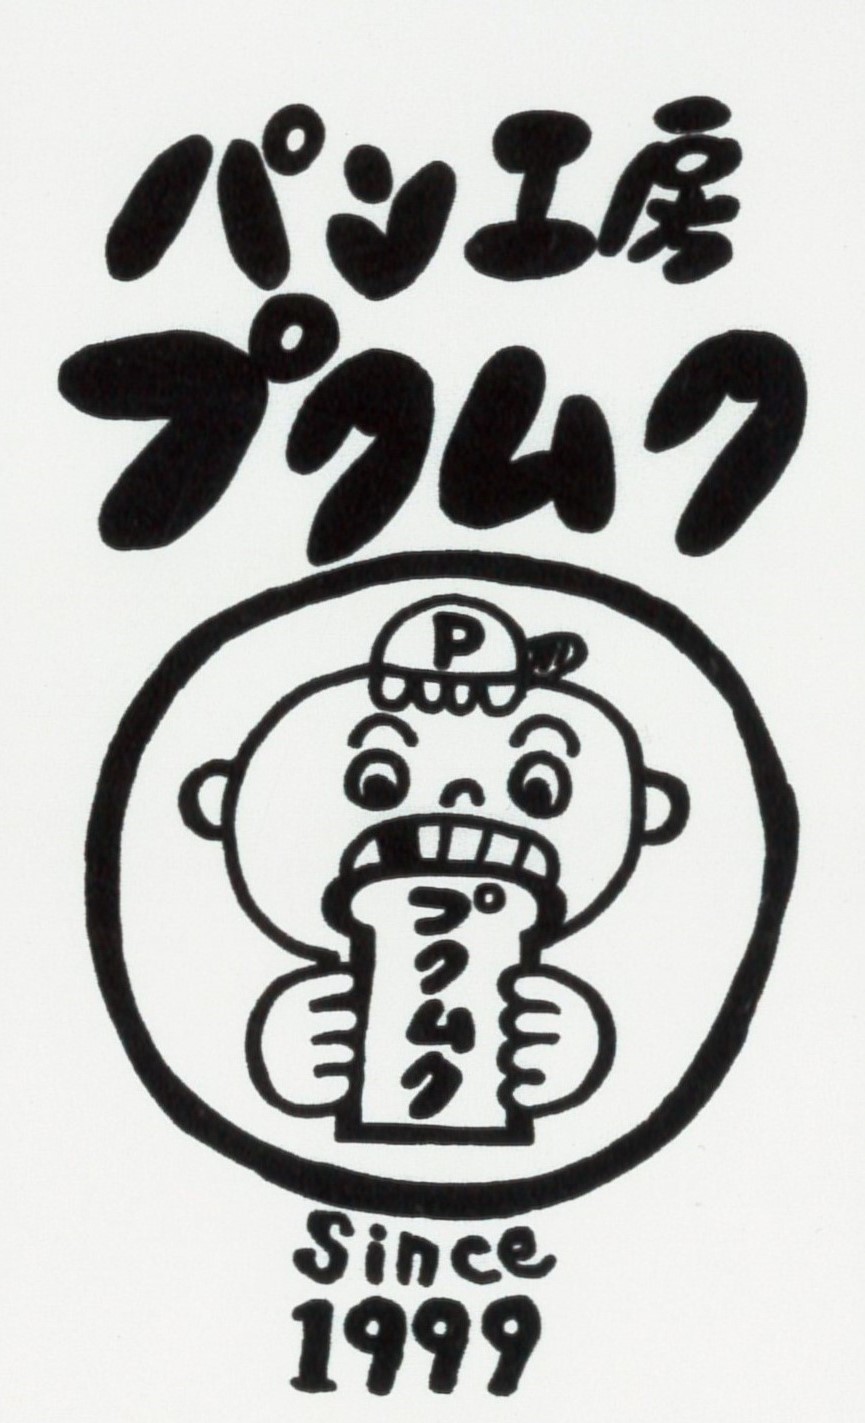 パン工房
プクムク
P
プクムク
Since
1999